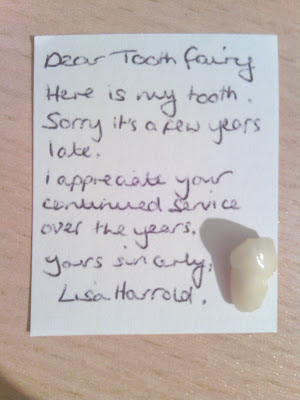 Dear Tooth fairy
Here is my tooth.
Sorry it's a few years
late.
i appreciate your
continued service
over the years.
yours sincerly,
Lisa Harrold.